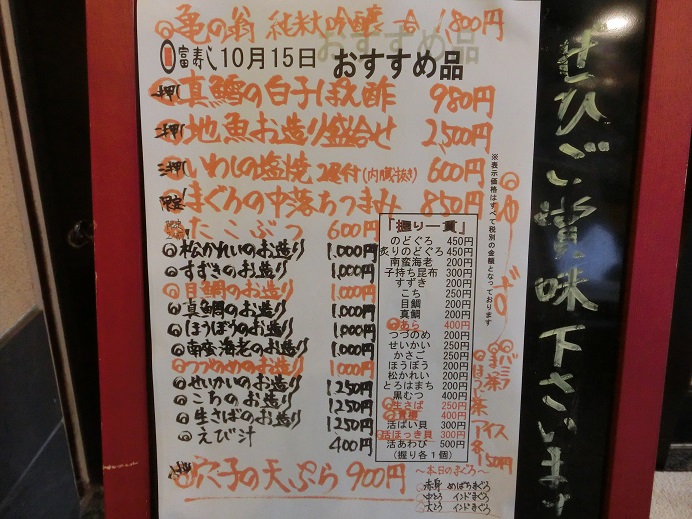 亀の翁 純米大吟醸 一合 1,800円
富寿し 10月15日 おすすめ品
一押し 真鱈の白子ぽん酢 980円
二押し 地魚お造り盛合せ 2,500円
三押し いわしの塩焼 2尾付(内臓抜き) 600円
まぐろの中落ちつまみ 850円
たこぶつ 600円
松かれいのお造り 1,000円
すずきのお造り 1,000円
目鯛のお造り 1,000円
真鯛のお造り 1,000円
ほうぼうのお造り 1,000円
南蛮海老のお造り 1,000円
つづのめのお造り 1,000円
せいかいのお造り 1,250円
こちのお造り 1,250円
生さばのお造り 1,250円
えび汁 400円
穴子の天ぷら 900円
「握り一貫」
のどぐろ 450円
炙りのどぐろ 450円
南蛮海老 200円
子持ち昆布 300円
すずき 200円
こち 250円
目鯛 200円
真鯛 200円
あら 400円
つづのめ 200円
せいかい 250円
かさご 250円
ほうぼう 200円
松かれい 200円
とろはまち 200円
黒むつ 400円
生さば 250円
400円
活ばい貝 300円
活ほっき貝 300円
活あわび 500円
(握り各1個)
~本日のまぐろ~
赤身 めばちまぐろ
中とろ インドまぐろ
大とろ インドまぐろ
※表示価格はすべて税別の金額となっております
アイス
ぜひご賞味下さいます